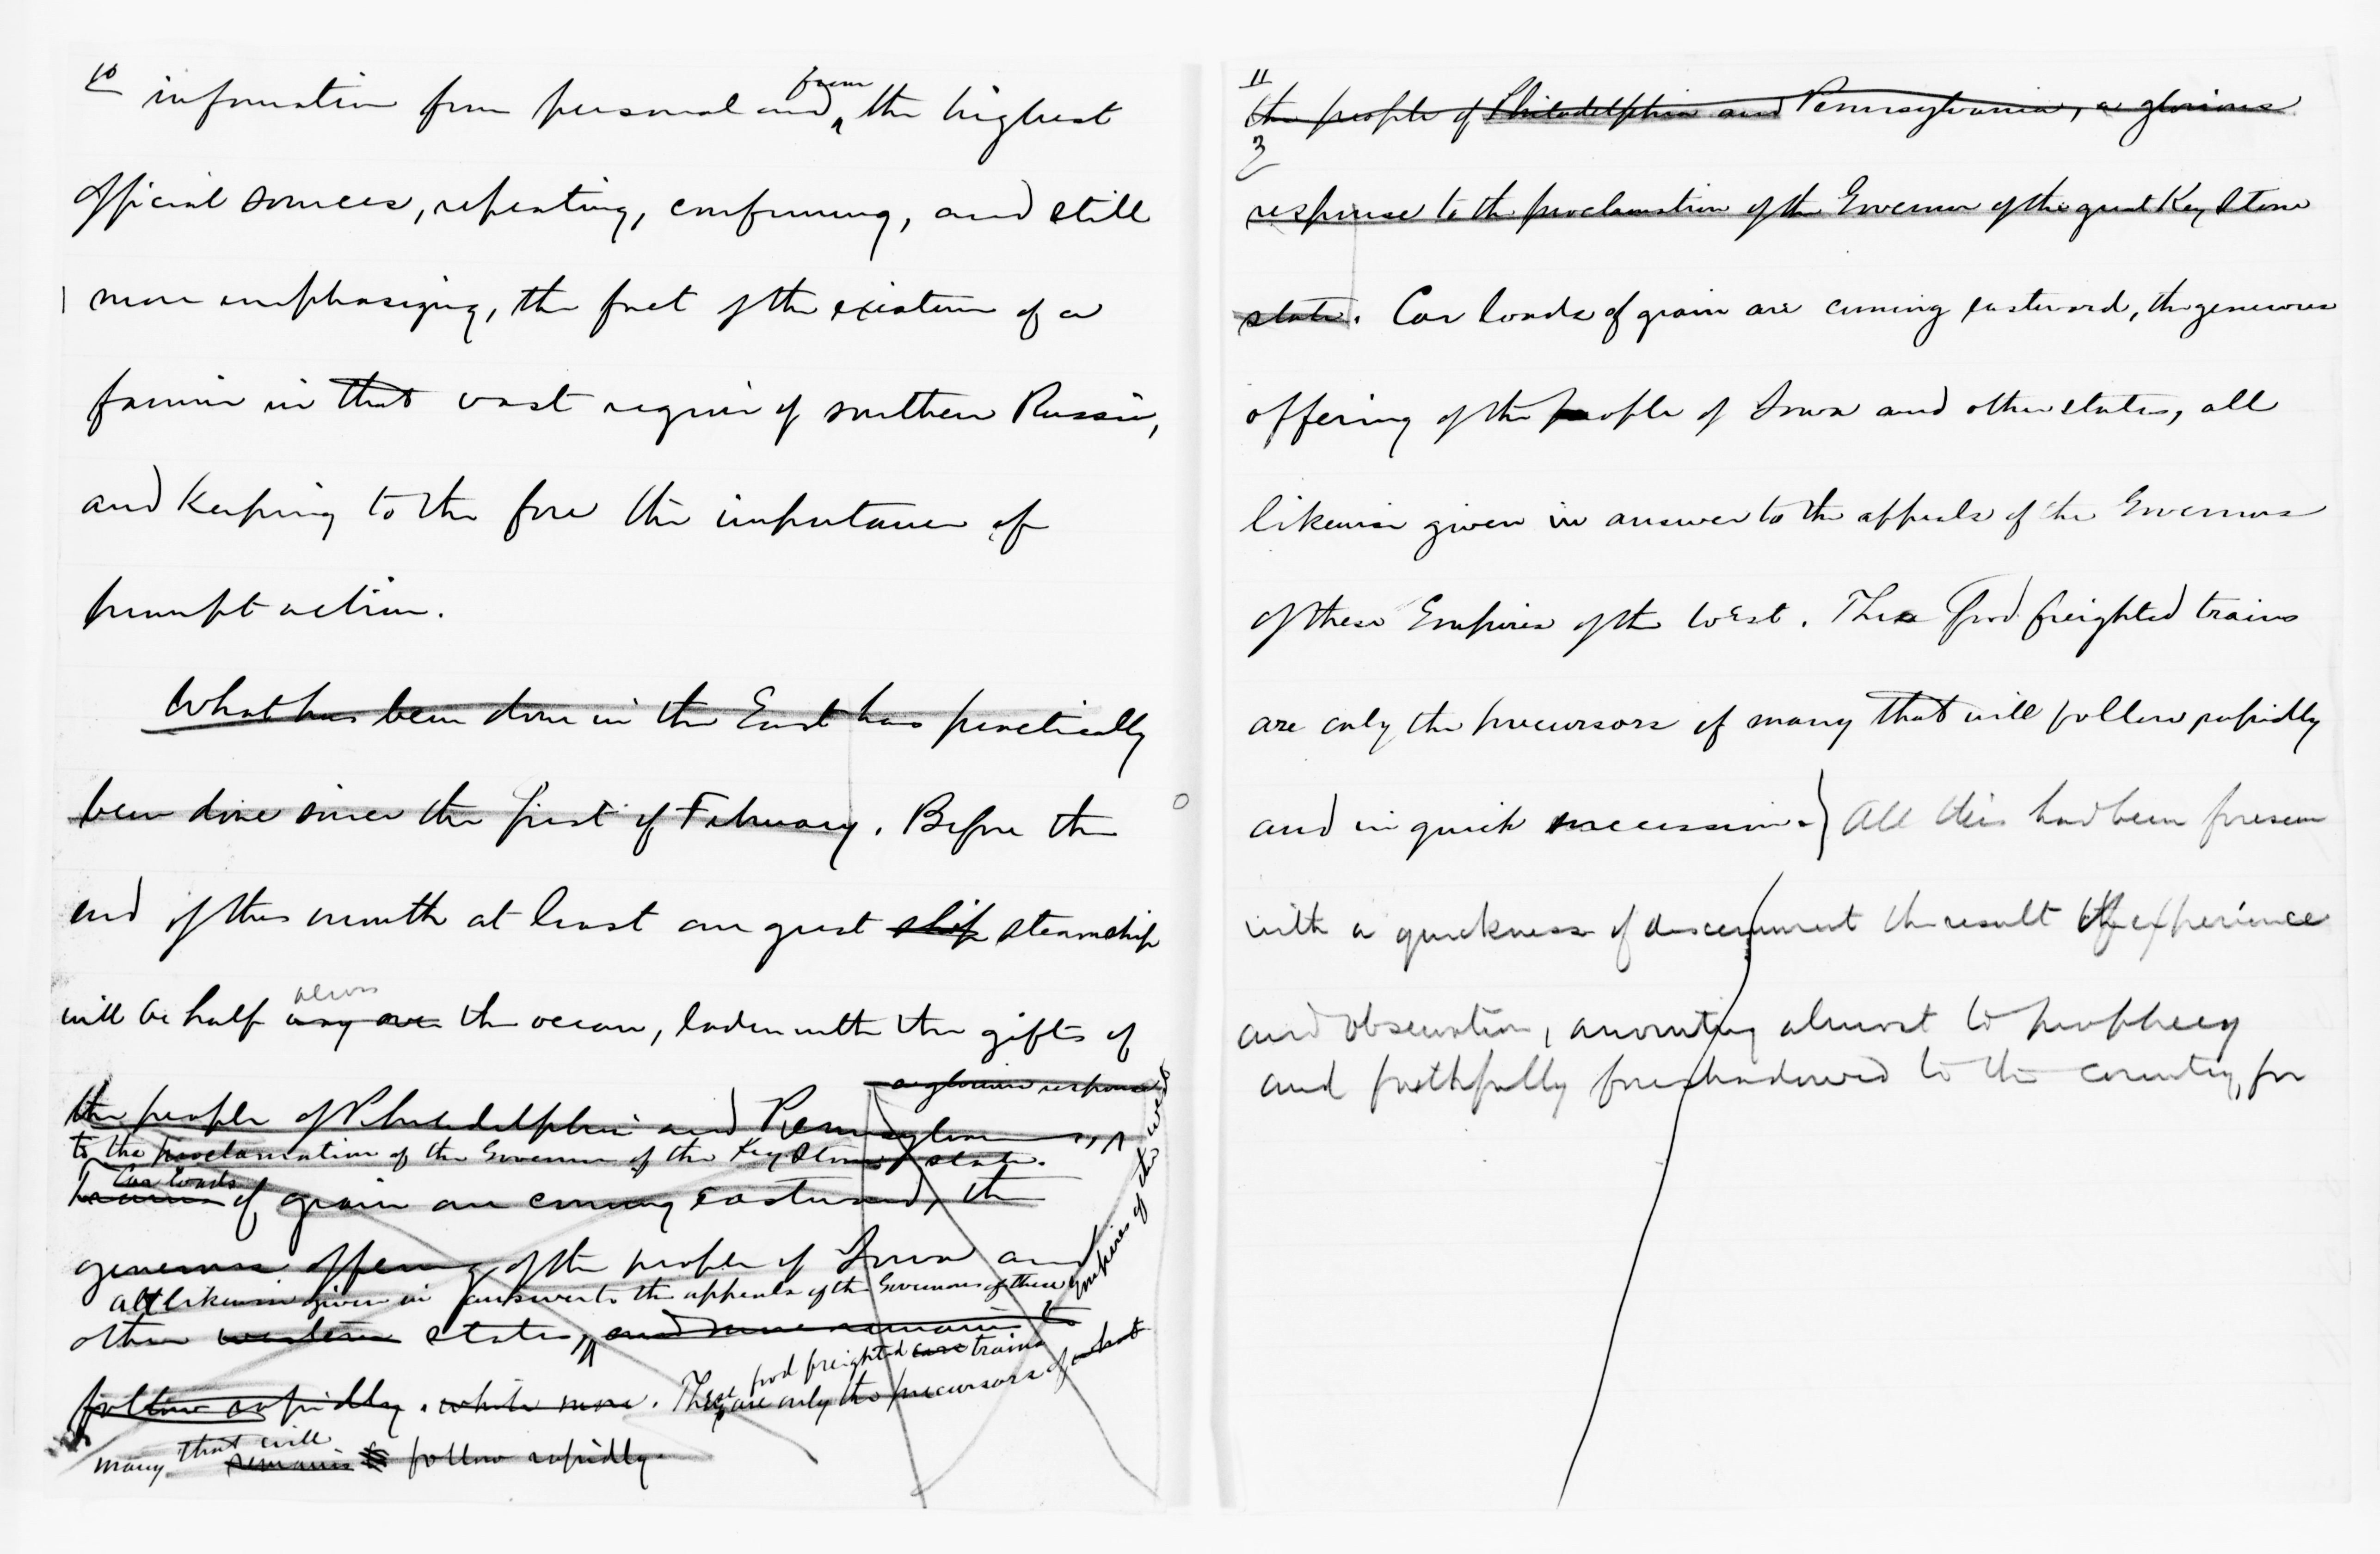 10
information from personal and from the highest
official sources, repeating, confirming, and still
more emphasizing, the fact of the existence of a
famine in that vast region of southern Russia,
and keeping to the fore the importance of
prompt action.
What has been done in the East has practically
been done since the first of February. Before the
end of this month at least one great ship steamship
across
will be half way over the ocean, laden with the gifts of
a glorious response
the people of Philadelphia and Pennsylvania,
to the proclamation of the Governor of the Key Stone state.
Car loads
Trains of grain are coming eastward, the
generous offering of the people of Iowa and
all likewise given in answer to the appeals of the Governors of these Empires of the west
other western states, and more remains to
food freighted cars trains
follow rapidly. while more. These are only the precursors of what
that will
many remains to follow rapidly.
11
the people of Philadelphia and Pennsylvania, a glorious
response to the proclamation of the Governor of the great Key Stone
state. Car loads of grain are coming eastward, the generous
offering of the people of Iowa and other states, all
likewise given in answer to the appeals of the Governors
of these Empires of the West. These food freighted trains
are only the precursors of many that will follow rapidly
and in quick succession. All this had been foreseen
with a quickness of discernment the result of experience
and observation, amounting almost to prophecy
and faithfully foreshadowed to the country, for